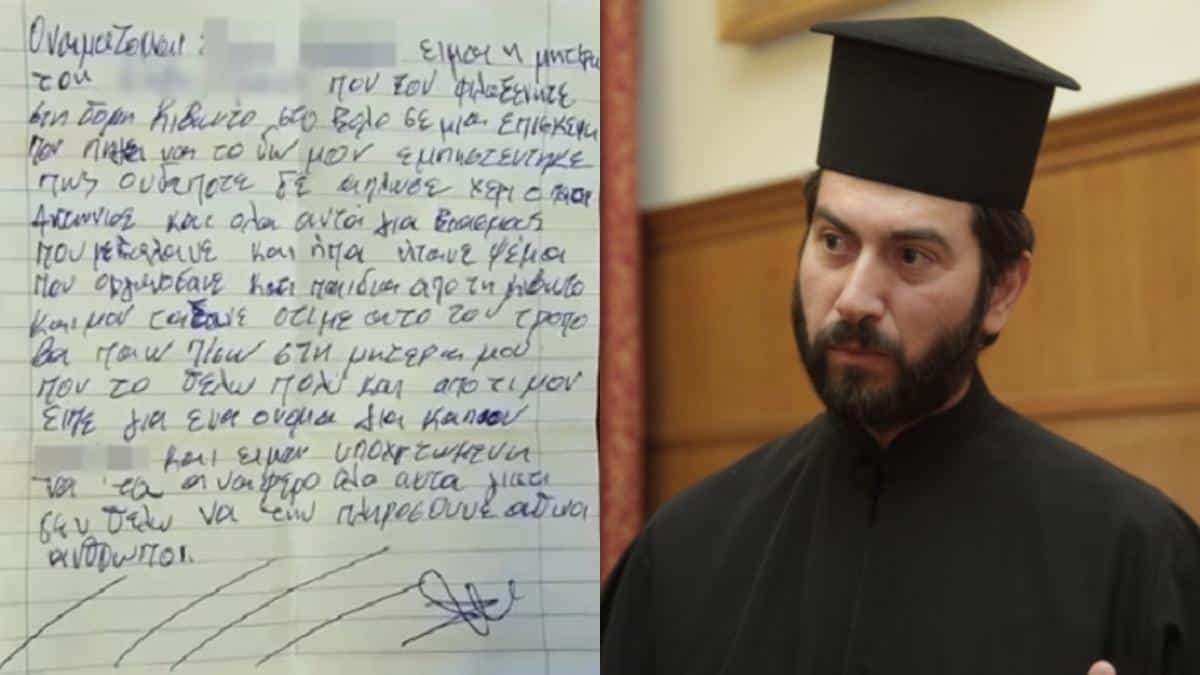 Ονοματεπωνυμο: ειμαι η μητερα
του που τον φιλοξενητε
στη δομη Κιβωτο στο Βολο σε μια επισκεψη
που πηγα να το δω μου εμπηστευτηκε
πως ουδεποτε δε απλωσε χερι ο
Αντωνιος και ολα αυτα για
και ητανε ψεμα
που οργανοσανε κατι παιδια απο τη κιβωτο
και μου οτι με αυτο τον τροπο
θα παω πισω στη μητερα μου
που το θελω πολυ και απο τι μου
ειπε για ενα ονομα για καποιον
και ειμαι
να τα αναφερο ολα αυτα γιατι
δεν θελω να την πληροσουνε αθωοι
ανθρωποι.